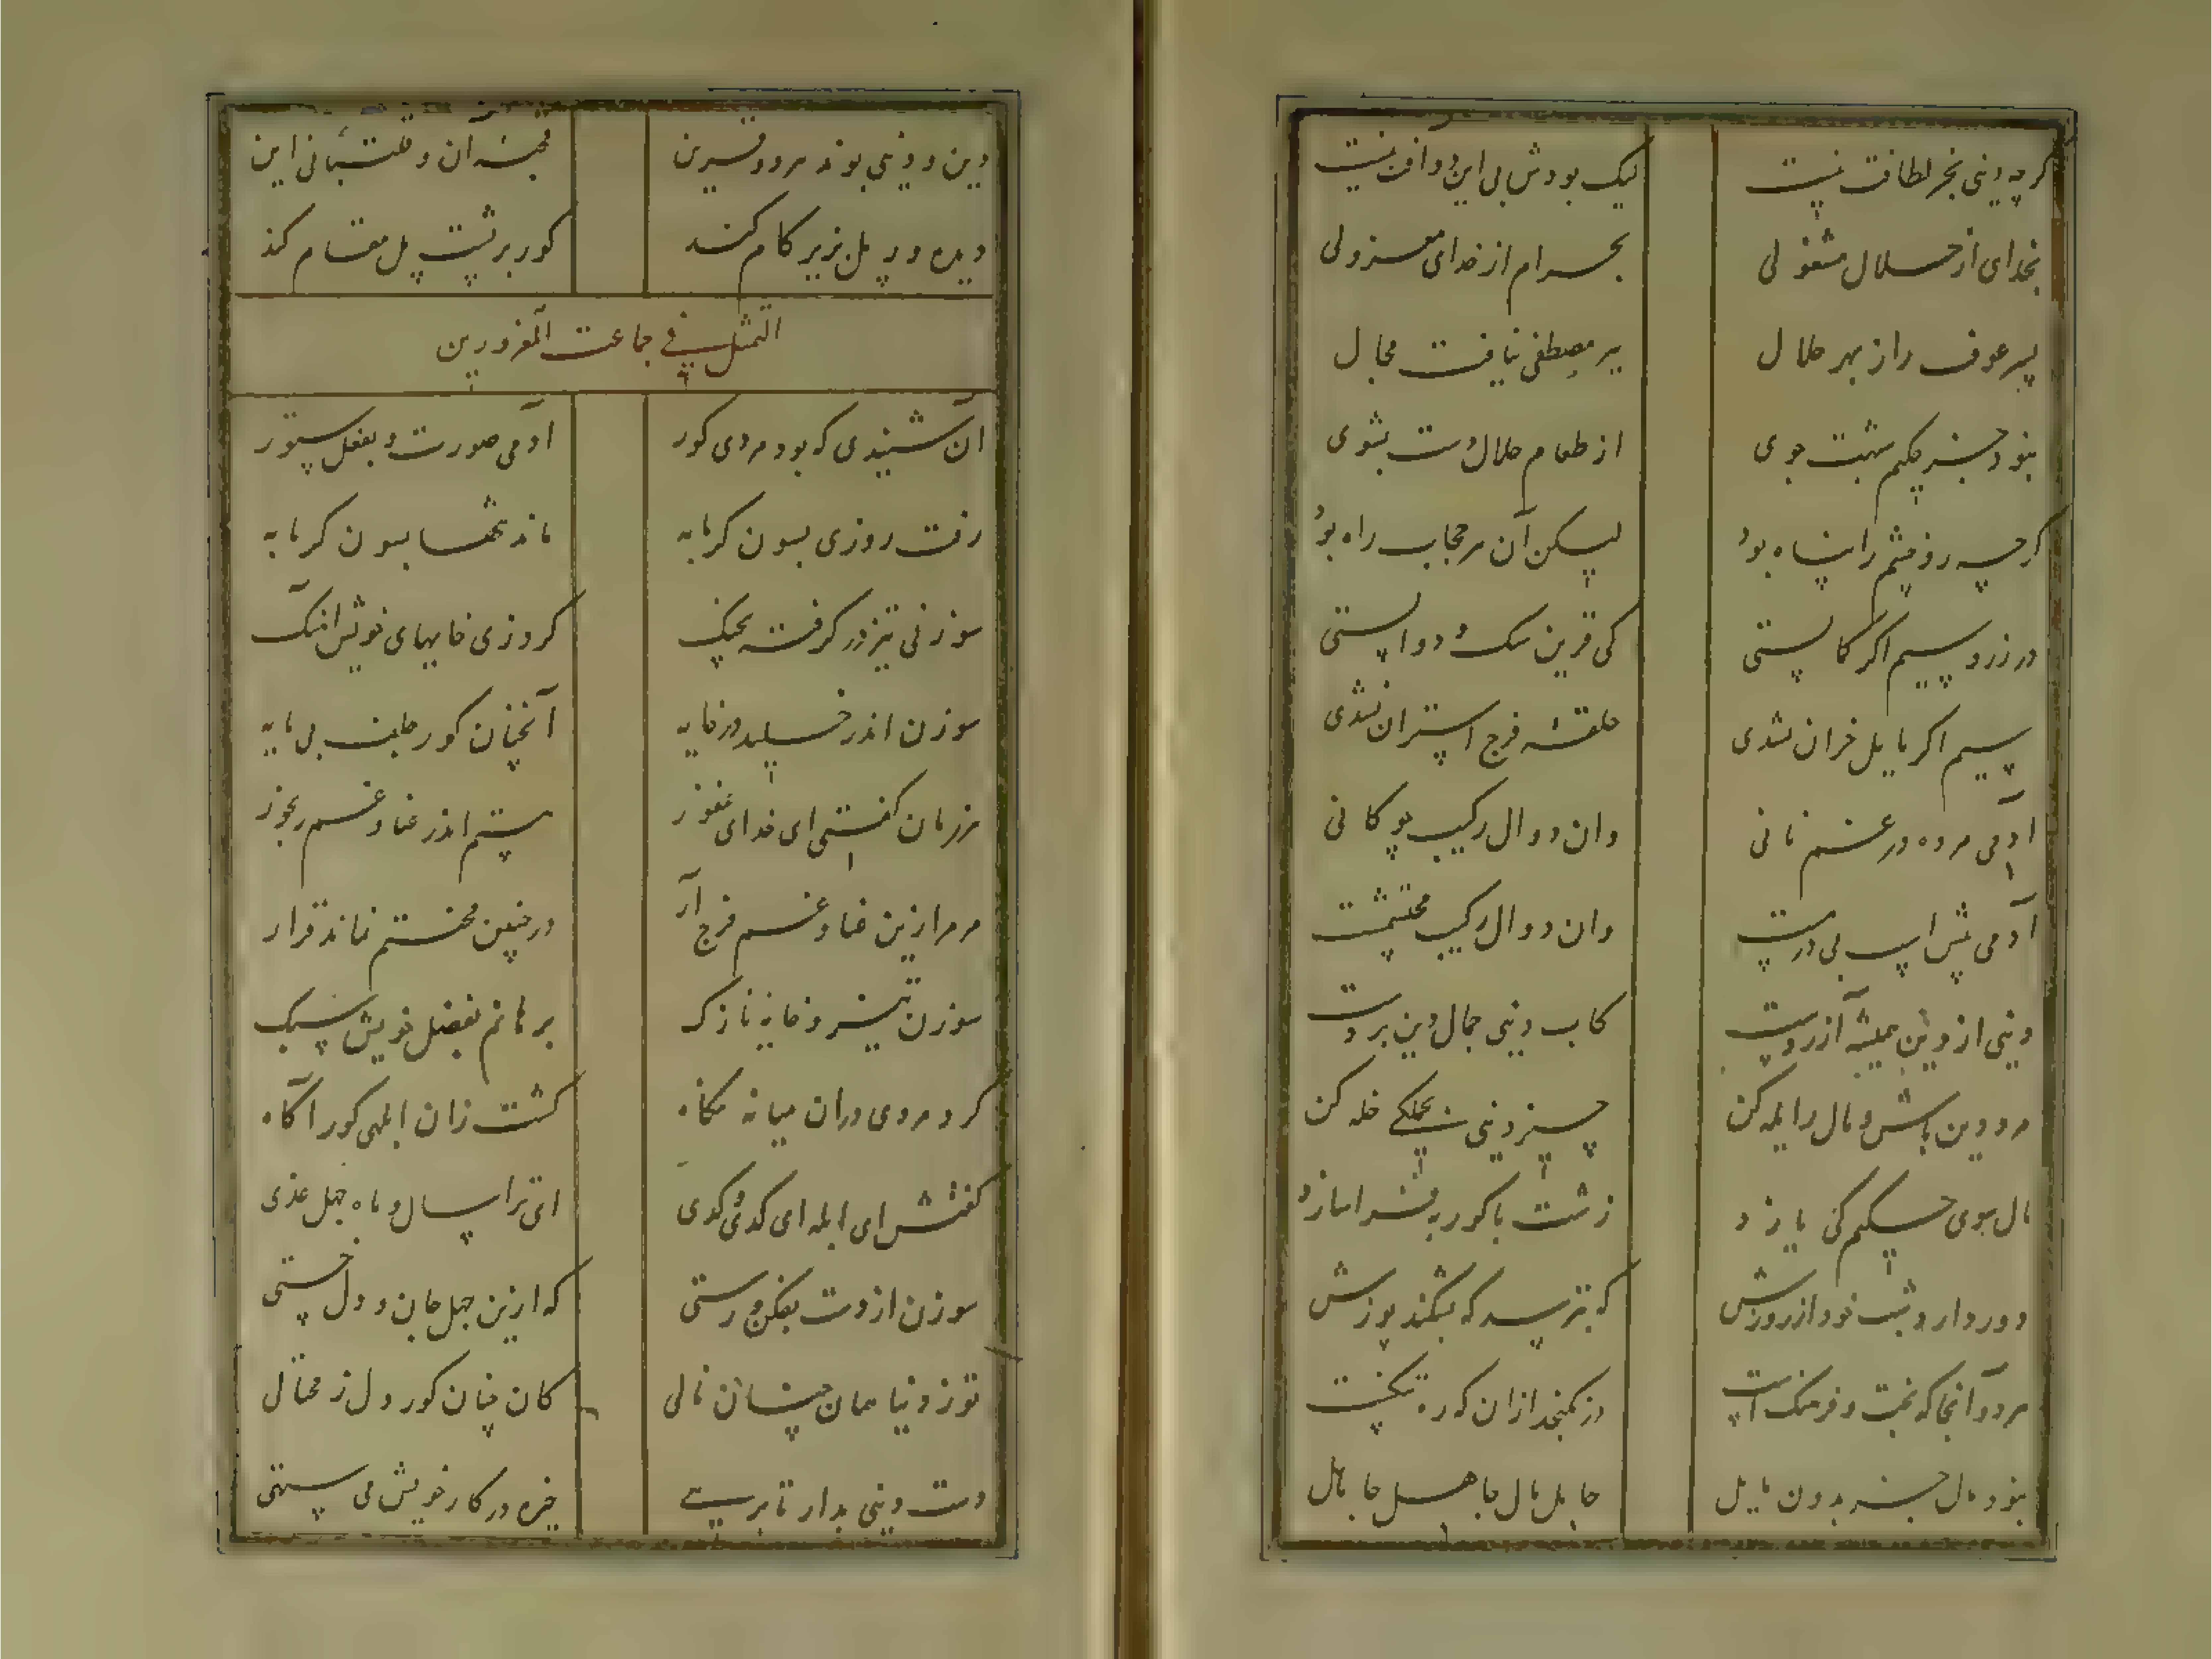 گرچه دینی بجز لطافت نیست لیک بودش بی این دو آفت نیست
بخدای از حلال مشغولی بحرام از خدای معزولی
پسر عوف را ز بهر حلال بر مصطفی نیافت مجال
از طعام حلال دست بشوی
گرچه روز چشم را پناه بود لیکن آن مر حجاب راه بود
در زر و سیم اگر کمالستی کی قرین سک و دوالستی
سیم اگر مایل خران نشدی حلقه فرج استران نشدی
آدمی مرده در غم نانی وان دوال رکیب
آدمی پیش اسب بی درست وان دوال رکیب محتشمست
دینی از دین همیشه کاب دینی جمال دین بردست
مرد دین باش و مال را یله کن چیز دینی خله کن
مال سوی حکیم کی یازد زشت با کور به فرا سازد
دور دار که بترسد که بشکند پوزش
مرد آنجا که بخت و فرهنگ است
نبود مال جز بدون مایل جا مال جاهل جا
دین و دینی بوند مرد و قرین آن و قلتبانی این
دیده در پل بزیر کام کند کور بر پشت پل مقام کند
التمثیل فی جماعت المغرورین
آن شنیدی که بود مردی کور آدمی صورت و بفعل ستور
رفت روزی بسون کرمابه ماند تنها بسون کرمابه
سوزنی تیز در کرفته بچنک کرد زی خایهای خویش آهنک
سوزن اندر خلید در خایه آنچنان کور جلف بی مایه
هر زمان کفتی ای خدای غفور ستم اندر عنا و غم رنجور
مر مرا زین عنا و غم فرج آر در چنین محنتم نماند قرار
سوزن تیز و خایه نازک برهانم بفضل خویش سبک
کرد مردی دران میانه نکاه کشت زان ابلهی کور آکاه
کفتش ای ابله ای کدوی کدوی ای ترا سال و ماه جهل غذی
سوزن از دست بفکن و رستی که ازین جهل جان و دل خستی
تو ز دنیا همان چنان نالی کان چنان کور دل ز محتالی
دست دینی بدار تا برهی خیره در کار خویش می